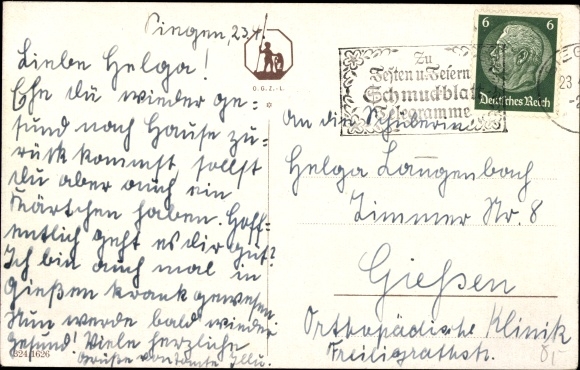 Singen, 23.4.
Liebe Helga!
Ehe du wieder ge-
sund nach Hause zu-
rück kommst, sollst
du aber auch ein
Kärtchen haben. Hoff-
entlich geht es dir gut?
Ich bin auch mal in
Gießen krank gewesen.
Nun werde bald wieder
gesund! Viele herzliche
Grüße von Tante Illu.
324 1626
O.G.Z.-L.
Zu
Festen u. Feiern
Schmuckblatt
Telegramme
6 6
Deutsches Reich
23
An die Schülerin
Helga Langenbach
Zimmer Nr. 8
Gießen
Orthopädische Klinik
Freiligrathstr.